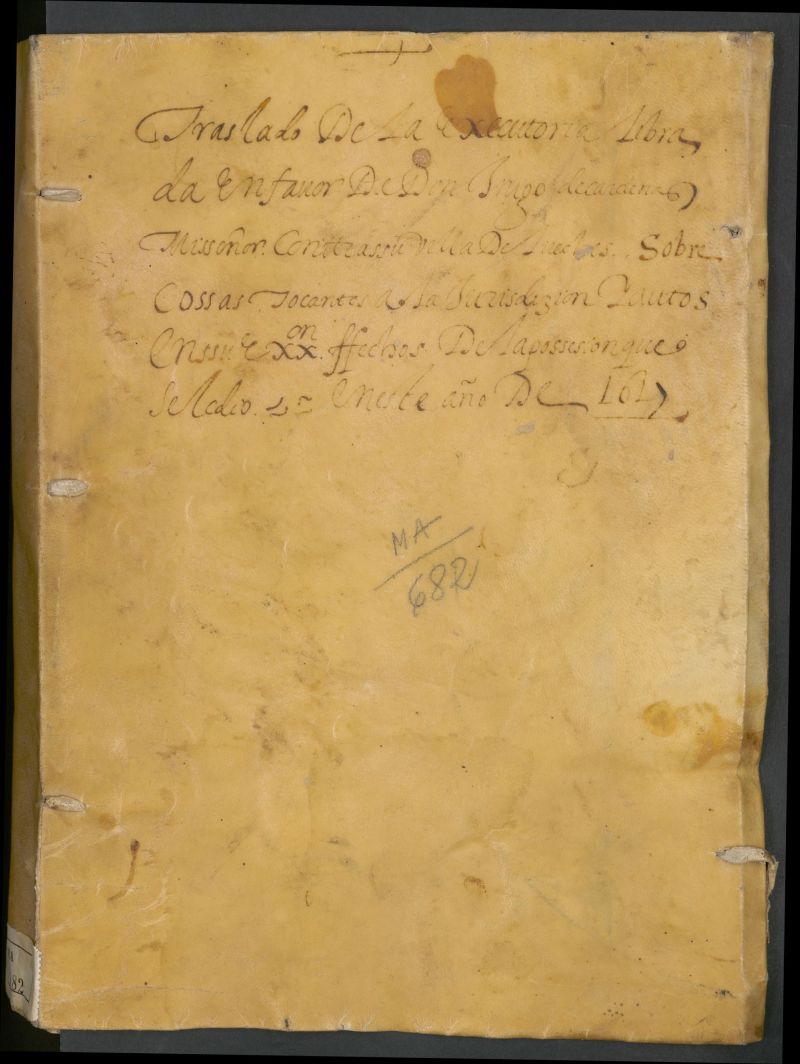 Traslado De La Executoria Libra
da En fauor De Don Inigo de cardenas
Misseñor. Contra ssu villa De Loeches. Sobre
Cossas Tocantes a La Jurisdizion Pautos
En ssu Exxon. ffechos De La possession que
Se Le dio. En este año De 1617
MA
682
82